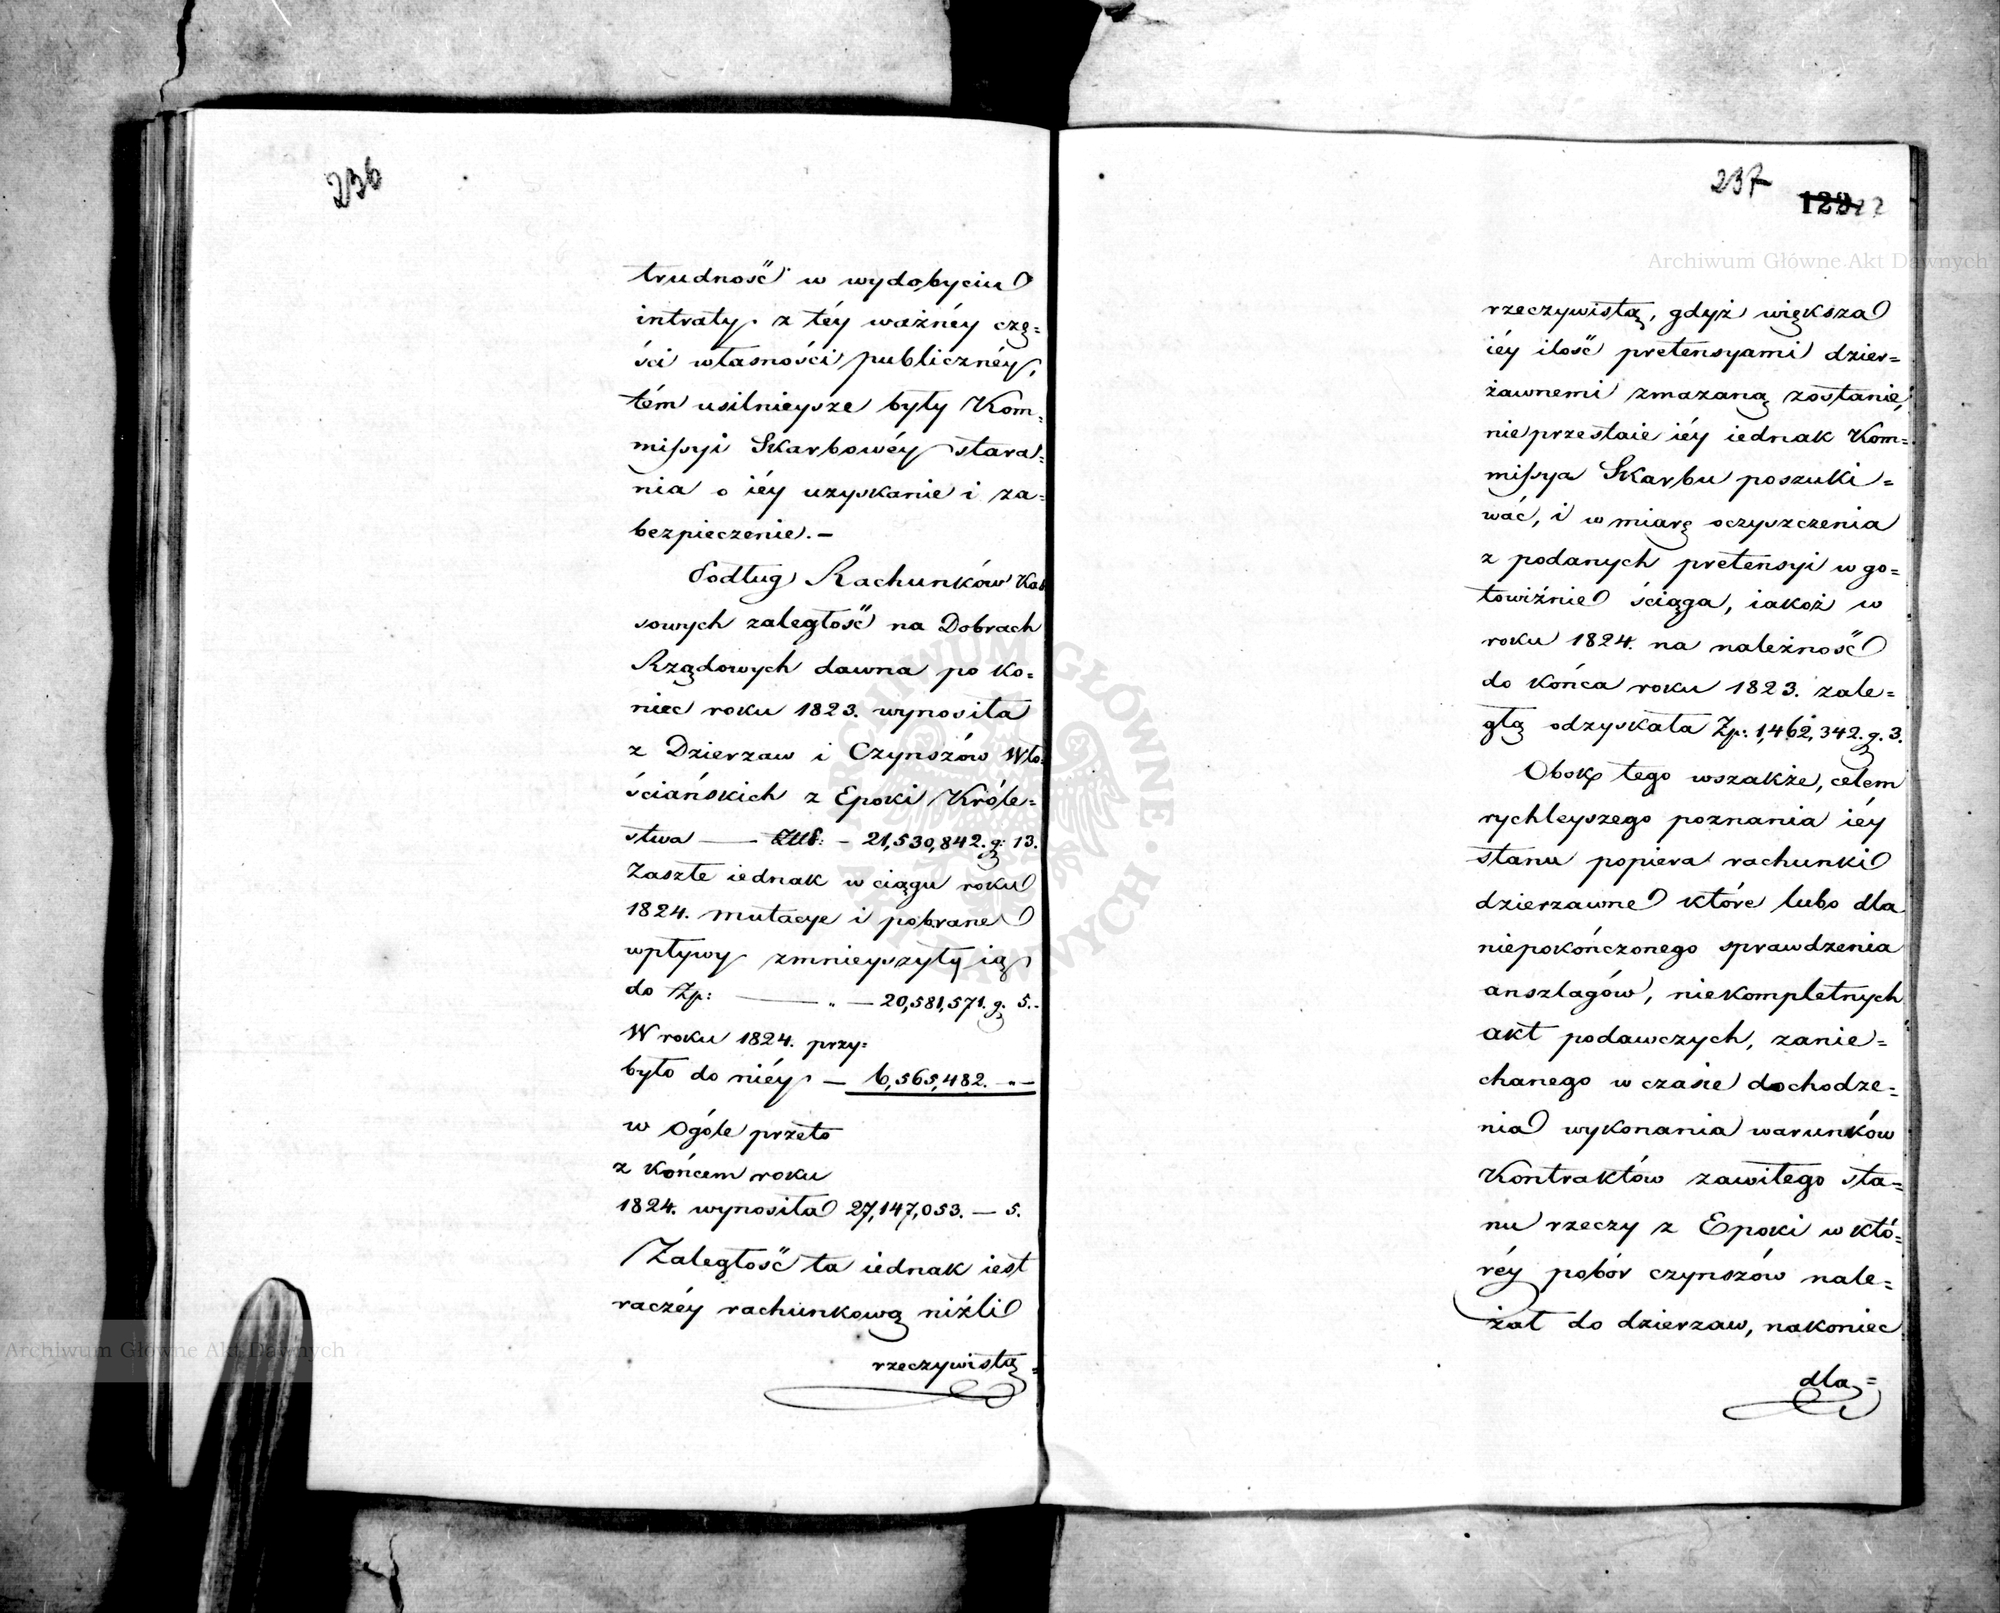 236
trudność w wydobyciu
intraty z téy ważnéy czę=
ści własności publicznéy,
tém usilnieysze były Kom=
missyi Skarbowéy stara=
nia o iéy uzyskanie i za=
bezpieczenie. —
Podług Rachunków Kas
sowych zaległość na Dobrach
Rządowych dawna po ko=
niec roku 1823. wynosiła
z Dzierzaw i Czynszów Wło=
ściańskich z Epoki Króle=
stwa — — 21,530,842. g: 13.
Zaszłe iednak w ciągu roku
1824. mutacye i pobrane
wpływy zmnieyszyły ią
do Zp: — " — 20,581,571. g. 5.-
W roku 1824. przy=
było do niéy — 6,565,482. " —
w Ogóle przeto
z końcem roku
1824. wynosiła 27,147,053. — 5.
Zaległość ta iednak iest
raczéy rachunkową niźli
rzeczywistą=
237
122
Archiwum Główne Akt Dawnych
rzeczywistą, gdyż większa
iéy ilość pretensyami dzier=
żawnemi zmazaną zostanie,
nieprzestaie iéy iednak Kom=
missya Skarbu poszuki=
wać, i w miarę oczyszczenia
z podanych pretensyi w go=
towiźnie ściąga, iakoż w
roku 1824. na należność
do końca roku 1823. zale=
głą odzyskała Zp: 1,462,342. g. 3.
Obok tego wszakże, celem
rychleyszego poznania iéy
stanu popiera rachunki
dzierzawne które lubo dla
niepokończonego sprawdzenia
anszlagów, niekompletnych
akt podawczych, zanie=
chanego w czasie dochodze=
nia wykonania warunków
Kontraktów zawiłego sta=
nu rzeczy z Epoki w któ=
réy pobór czynszów nale=
żał do dzierzaw, nakoniec
dla=
Archiwum Główne Akt Dawnych
ARCHIWUM GŁÓWNE AKT DAWNYCH